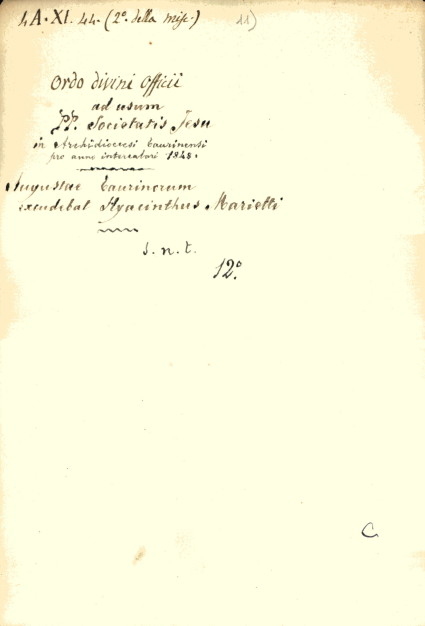 4 A. XI. 44. (2º. della misc.) 11)
Ordo divini Officii
ad usum
PP. Societatis Jesu
in Archidioecesi Taurinensi
pro anno intercalari 1848.
Augustae Taurinorum
excudebat Hyacinthus Marietti
s. n. t.
12º.
C